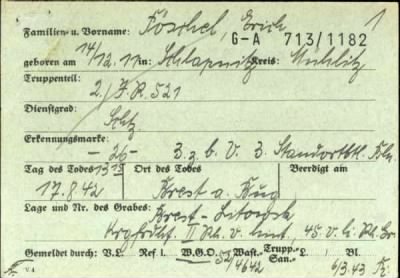 1
Familien- u. Vorname: Poschel, Erich
G-A 713/1182
geboren am 14/12.17 in: Schlapanitz Kreis:
Truppenteil:
2./J.R. 521
Dienstgrad:
Schtz.
Erkennungsmarke:
- 26 - 3. z. b. V. 3. Standortbtl. Köln
Tag des Todes 13 15 Ort des Todes Beerdigt am
17.8.42 Brest a. Bug
Lage und Nr. des Grabes: Brest-Litowsk
II 45. v. li.
Gemeldet durch: V.L. Ref. I. W.G.O. 52/4642 Wast.- Trupp.- San.- L. / Bl. 6/3.43
V 4